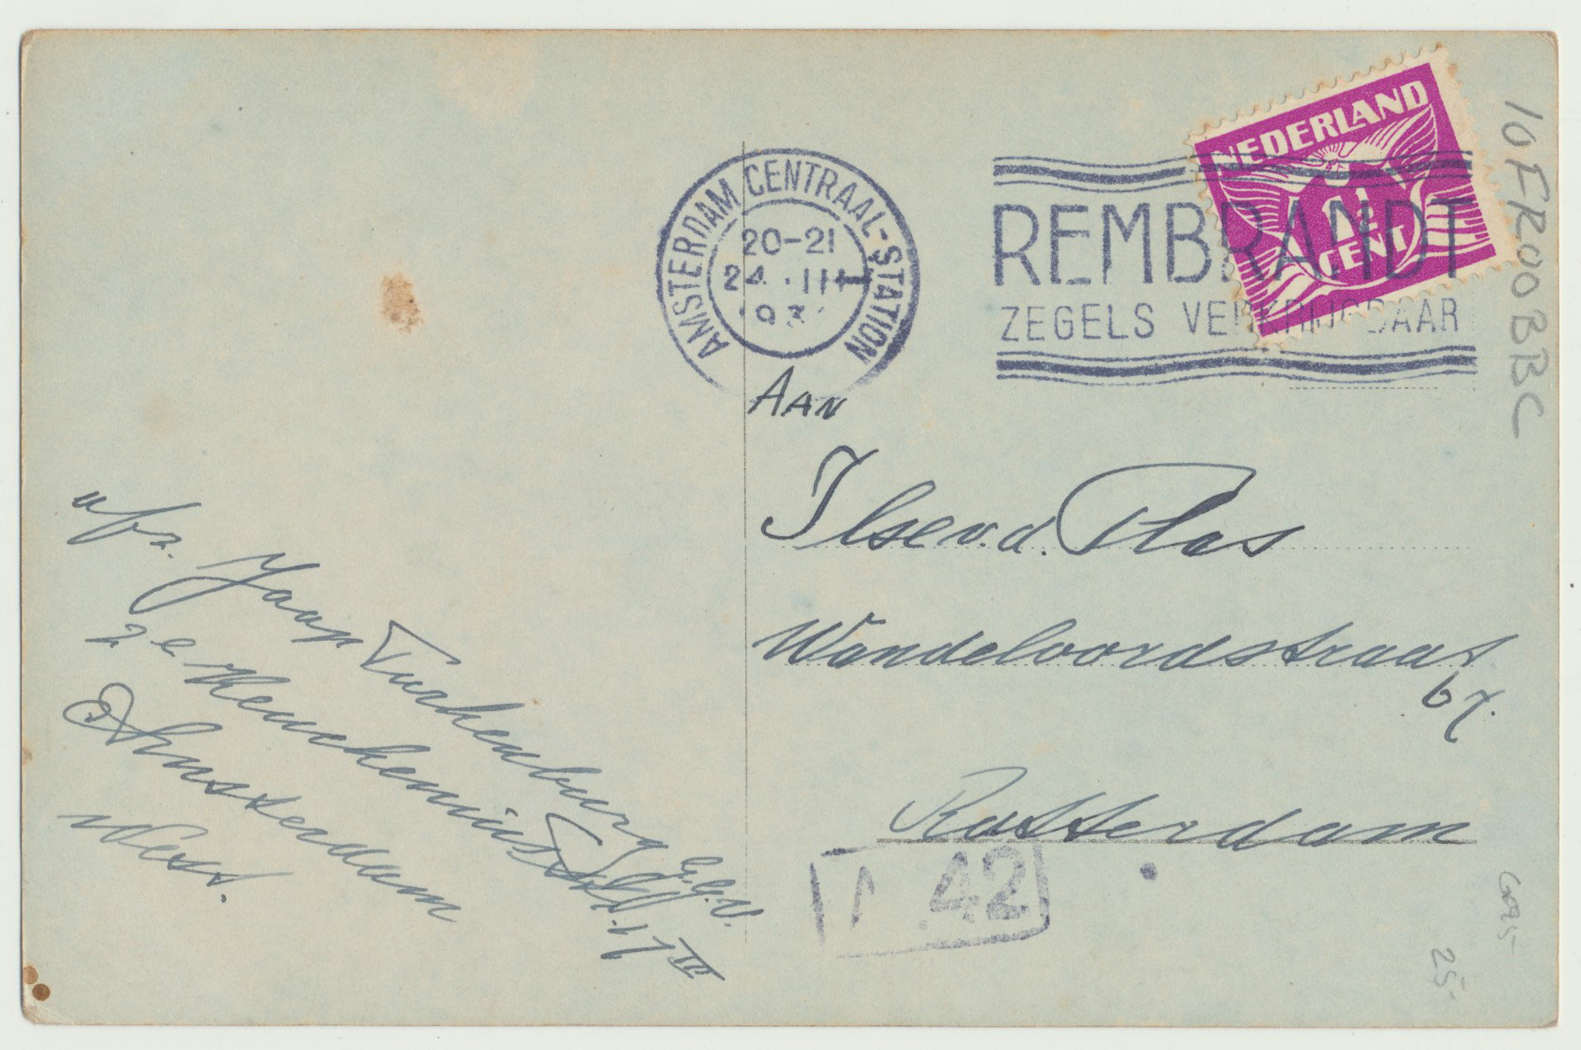 NEDERLAND
1½
CENT
AMSTERDAM CENTRAAL-STATION
20-21
24 .III
193
REMBRANDT
ZEGELS VERKRIJGBAAR
10 FR00 BBC
AAN
Ilse v.d. Plas
Wandeloordstraat
67.
Rotterdam
42
afz. Jaap Turkenburg G.G.V.
2e 17 III
Amsterdam
West.
25